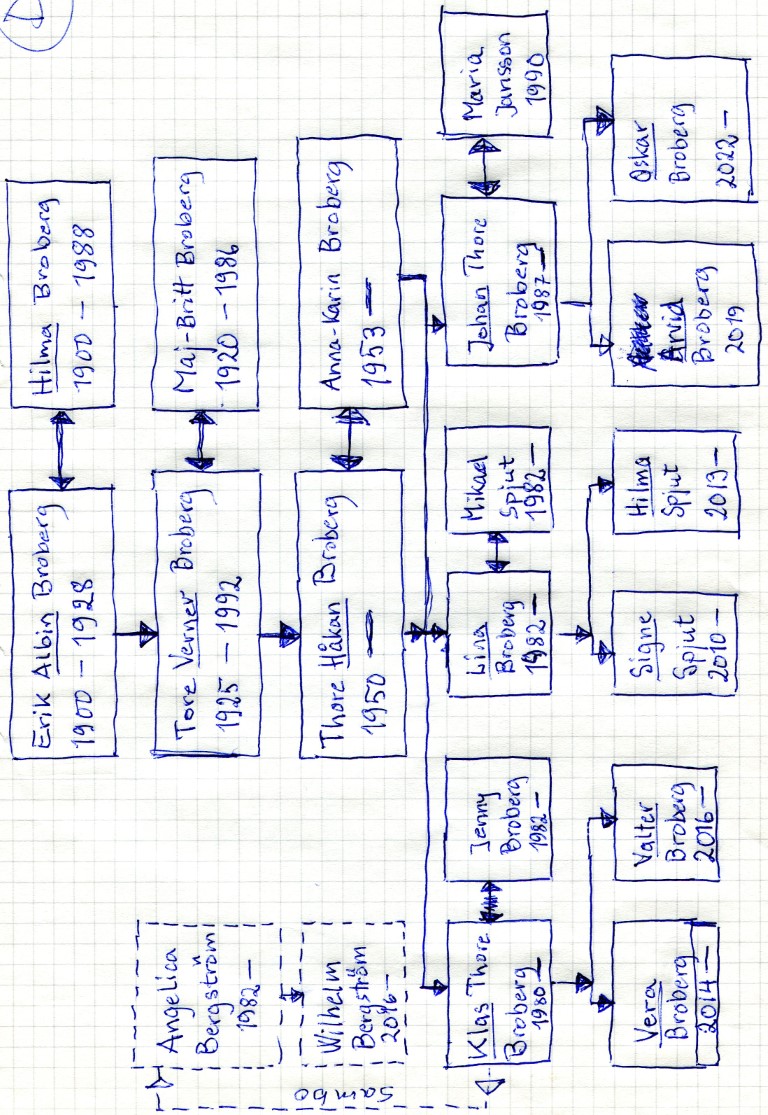 Erik Albin Broberg
1900 – 1928
Hilma Broberg
1900 – 1988
Tore Verner Broberg
1925 – 1992
Maj-Britt Broberg
1920 – 1986
Thore Håkan Broberg
1950 –
Anna-Karin Broberg
1953 –
Angelica
Bergström
1982 –
Wilhelm
Bergström
2016 –
Sambo
Klas Thore
Broberg
1980 –
Jenny
Broberg
1982 –
Lina
Broberg
1982 –
Mikael
Spjut
1982 –
Johan Thore
Broberg
1987 –
Maria
Jansson
1990
Vera
Broberg
2014 –
Valter
Broberg
2016 –
Signe
Spjut
2010 –
Hilma
Spjut
2013 –
Arvid
Broberg
2019
Oskar
Broberg
2022 –